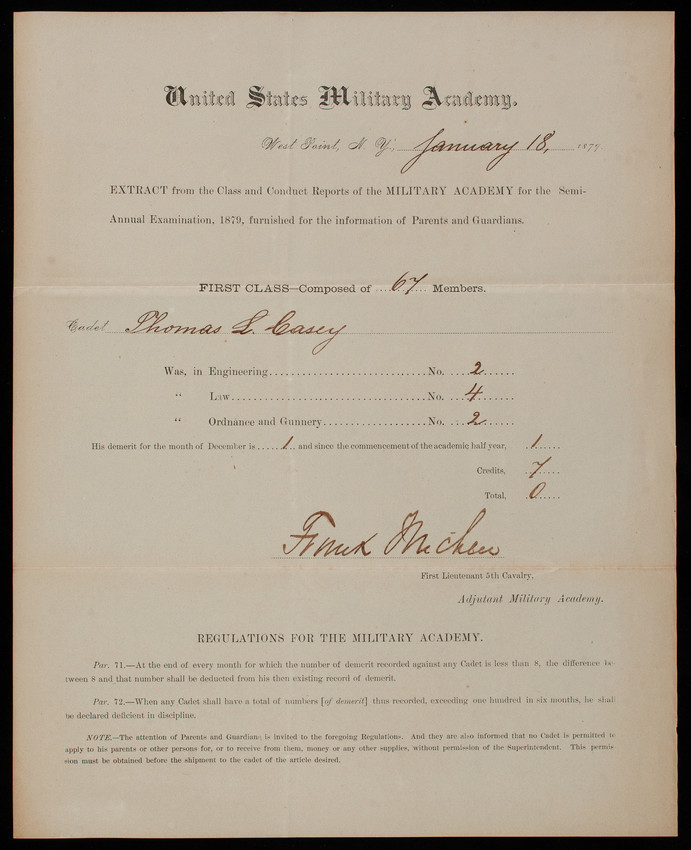 United States Military Academy.
West Point, N. Y., January 18, 1879
EXTRACT from the Class and Conduct Reports of the MILITARY ACADEMY for the Semi-
Annual Examination, 1879, furnished for the information of Parents and Guardians.
FIRST CLASS—Composed of ....67.... Members.
Cadet Thomas L. Casey
Was, in Engineering............................No. ....2......
“ Law...................................No. ....4......
“ Ordnance and Gunnery..................No. ....2......
His demerit for the month of December is .....1.., and since the commencement of the academic half year, ..1.....
Credits, ..7.....
Total, ..0.....
Frank Michler
First Lieutenant 5th Cavalry,
Adjutant Military Academy.
REGULATIONS FOR THE MILITARY ACADEMY.
Par. 71.—At the end of every month for which the number of demerit recorded against any Cadet is less than 8, the difference be-
tween 8 and that number shall be deducted from his then existing record of demerit.
Par. 72.—When any Cadet shall have a total of numbers [of demerit] thus recorded, exceeding one hundred in six months, he shall
be declared deficient in discipline.
NOTE.—The attention of Parents and Guardians is invited to the foregoing Regulations. And they are also informed that no Cadet is permitted to
apply to his parents or other persons for, or to receive from them, money or any other supplies, without permission of the Superintendent. This permis-
sion must be obtained before the shipment to the cadet of the article desired.